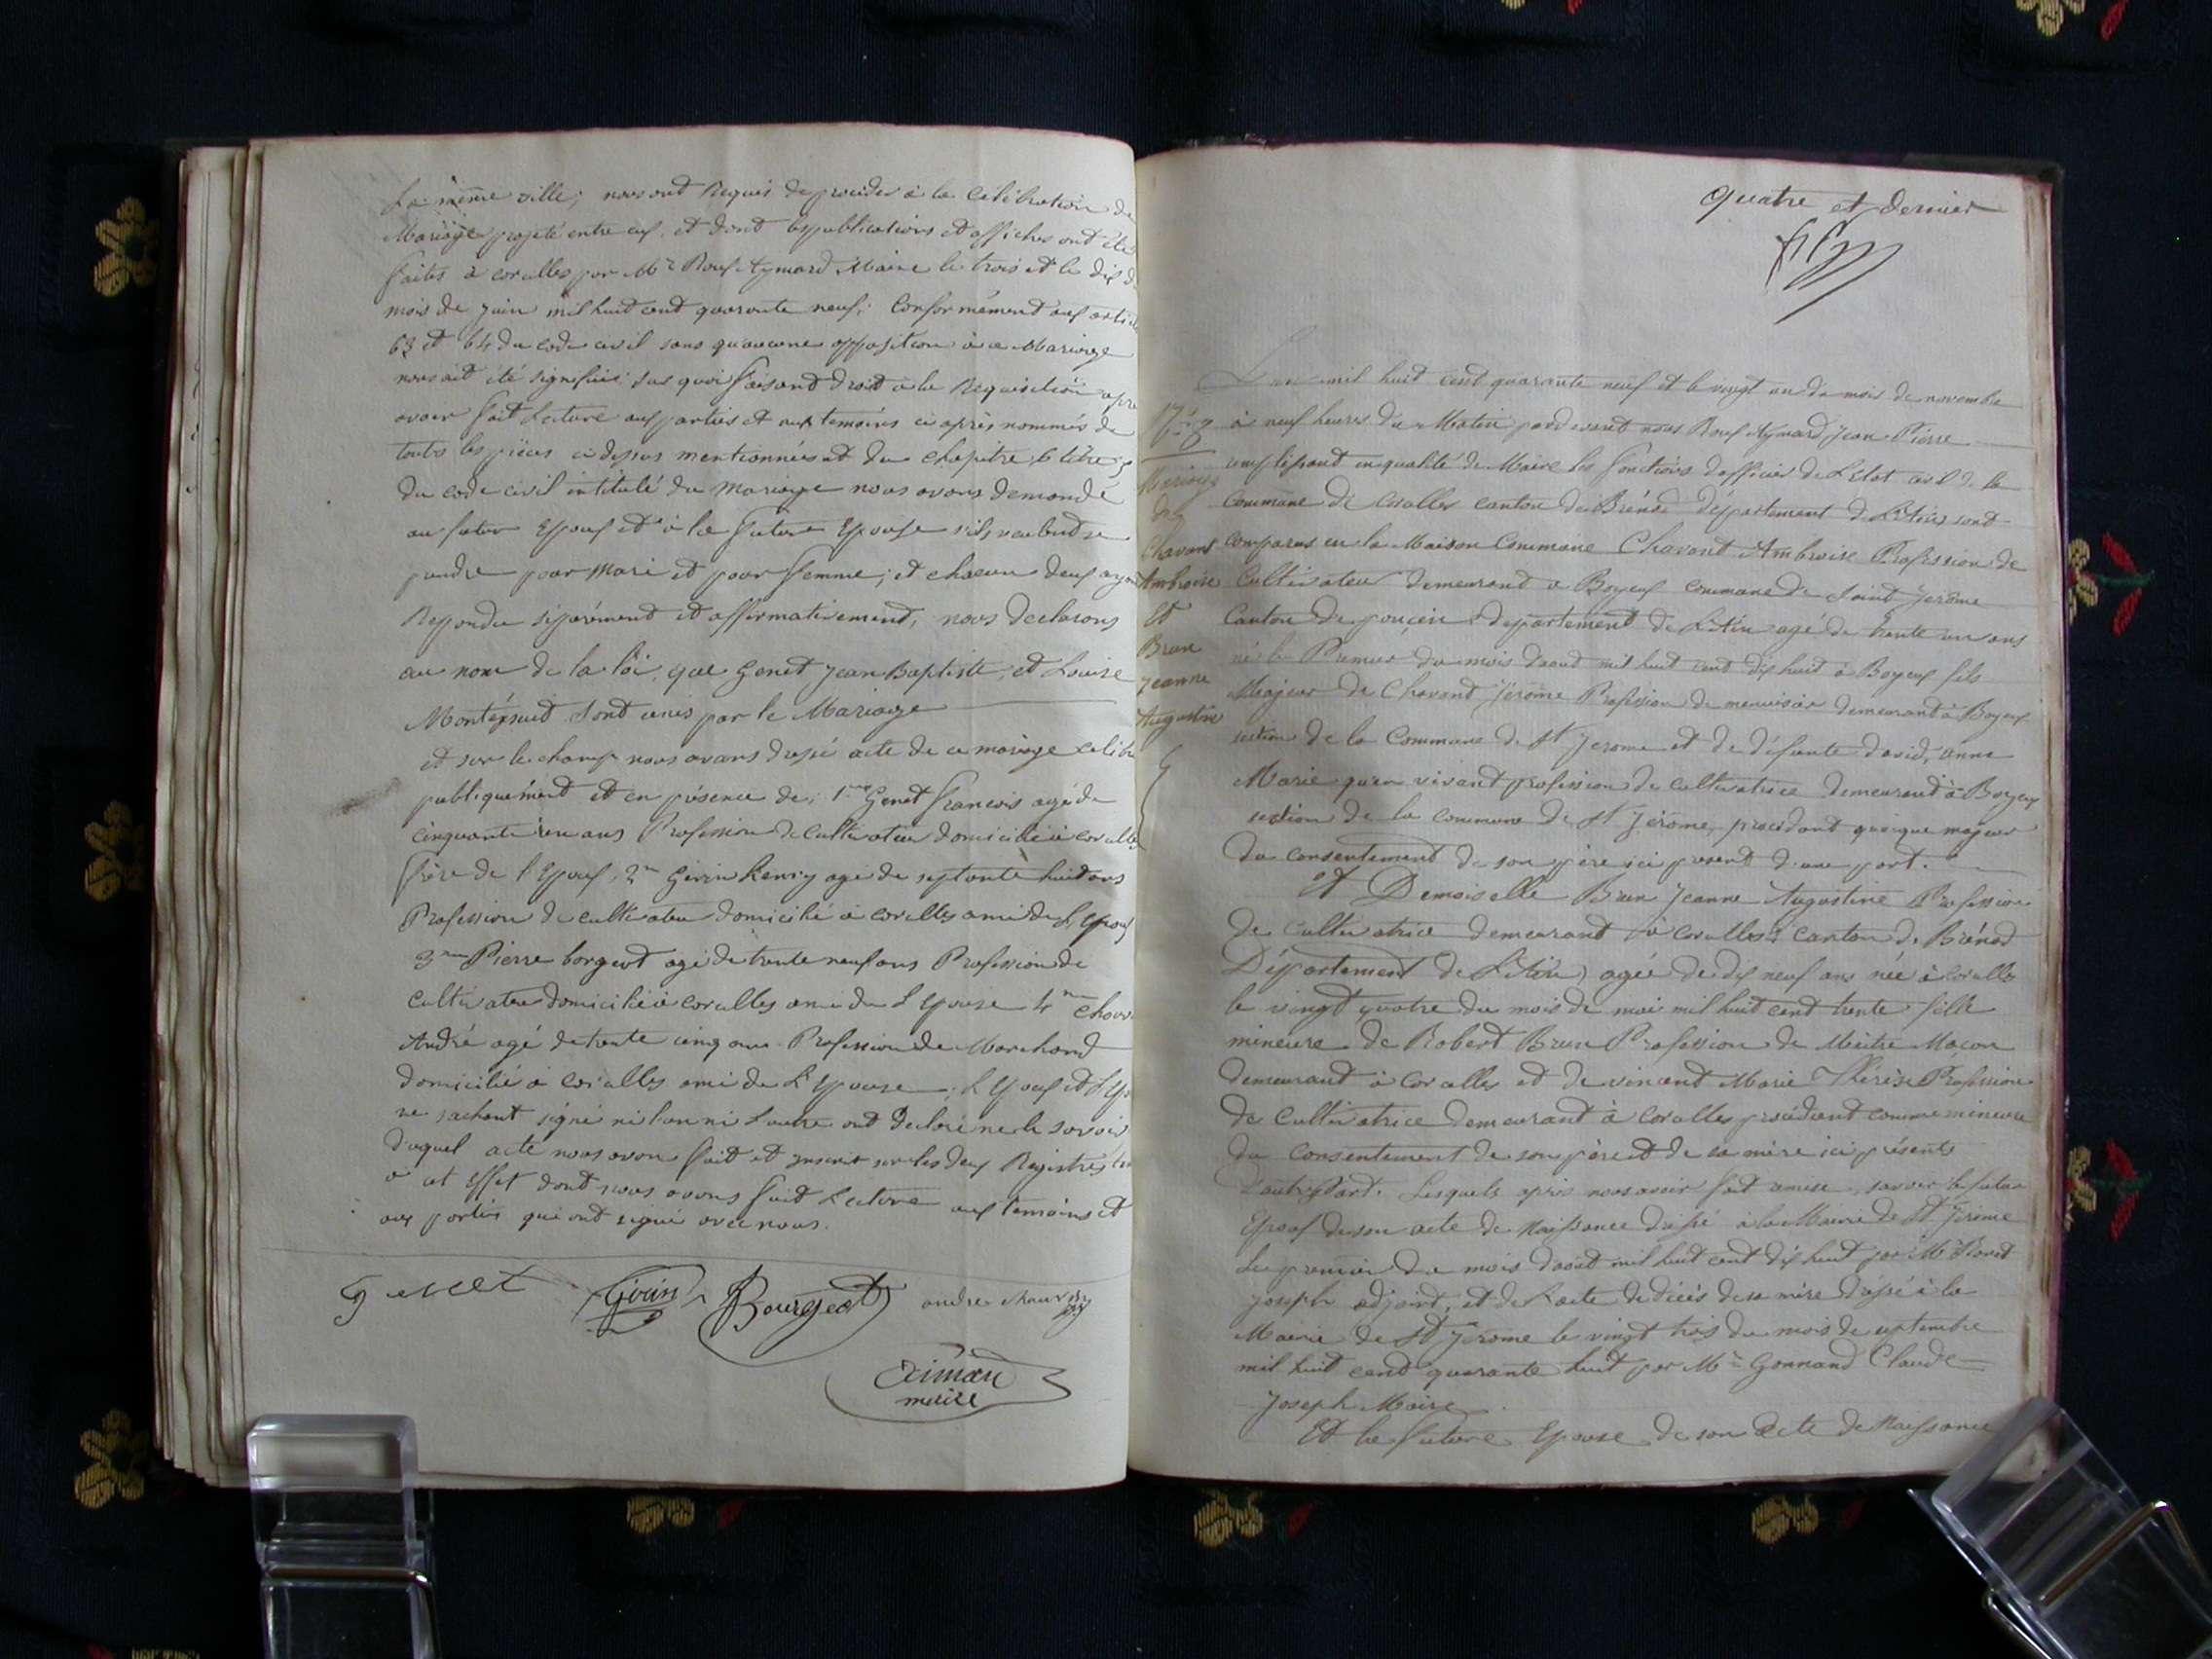 la même ville; nous ont Requis de procéder à la célébration du
Mariage projeté entre eux, et dont les publications et affiches ont été
faites à corcelles par Mr Roux Aymard Maire le trois et le dix d
mois de juin mil huit cent quarante neuf; Conformément aux artic
63 et 64 du code civil sans qu'aucune opposition à ce Mariage
nous ait été signifiée sur quoi faisant droit à la Requisition apre
avoir fait lecture aux parties et aux temoins ci après nommés de
toutes les pièces ci dessus mentionnées et du chapitre 6 titre 5
du code civil intitulé du mariage nous avons demandé
au futur Epoux et à la future Epouse s'ils veulent se
prendre pour mari et pour femme; et chacun deux ayant
Repondu séparément et affirmativement, nous declarons
au nom de la loi, que Genet Jean Baptiste, et Louise
sont unis par le Mariage
et sur le champ nous avons dressé acte de ce mariage célébré
publiquement et en présence de; 1er Genet francois agé de
cinquante un ans Profession de Cultivateur domicilié à corcelles
frère de l'Epoux, 2me Girin henry agé de septante huit ans
Profession de cultivateur domicilié à corcelles ami de L'Epoux
3me Pierre borgeot agé de trente neuf ans Profession de
cultivateur domicilié à corcelles ami de L'Epouse 4me
André agé de trente cinq ans Profession de Marchand
domicilié à corcelles ami de L'Epouse; L'Epoux et L'Ep
ne sachant signé ni l'un ni L'autre ont déclaré ne le savoir
duquel acte nous avons fait et inscrit sur les deux Registres
à cet Effet dont nous avons fait Lecture aux temoins et
aux parties qui ont signé avec nous.
genet Girin Bourgeat andre
Aimar
maire
quatre et dernier
L'an mil huit cent quarante neuf et le vingt un du mois de novembre
à neuf heures du Matin pardevant nous Roux Aymard Jean Pierre
remplissant en qualité de Maire les fonctions d'officier de L'Etat civil de la
commune de Corcelles canton de Brénod département de L'Ain sont
comparus en la Maison Commune Chavant Ambroise Profession de
Cultivateur demeurant à Boyeux commune de Saint Jerôme
Canton de poncin département de L'Ain agé de trente un ans
né le Premier du mois d'aout mil huit cent dix huit à Boyeux fils
Majeur de Chavant Jérôme Profession de menuisier demeurant à Boyeux
section de la Commune de St Jerome et de défunte david, anne
Marie qu'en vivant profession de cultivatrice demeurant à Boyeux
section de la commune de St Jérôme, procédant quoique majeur
du consentement de son père ici present d'une part.
et Demoiselle Brun Jeanne Augustine Profession
de Cultivatrice demeurant à corcelles canton de Brénod
Département de L'Ain, agée de dix neuf ans née à corcelles
le vingt quatre du mois de mai mil huit cent trente fille
mineure de Robert Brun Profession de Maitre Maçon
demeurant à corcelles et de vincent Marie Thérèse Profession
de Cultivatrice demeurant à corcelles procédant comme mineure
du consentement de son père et de sa mère ici présents
d'autre Part. Lesquels après nous avoir fait remise, savoir le futur
Epoux de son acte de Naissance dressé à la Mairie de St Jérôme
Le premier du mois d'aout mil huit cent dix huit par Mr
joseph adjoint, et de L'acte de décès de sa mère dressé à la
Mairie de St Jérome le vingt trois du mois de septembre
mil huit cent quarante huit par Mr Gonnand Claude
Joseph Maire.
Et la future Epouse de son Acte de Naissance
Mariage
de
Chavant
Ambroise
Et
Brun
Jeanne
Augustine